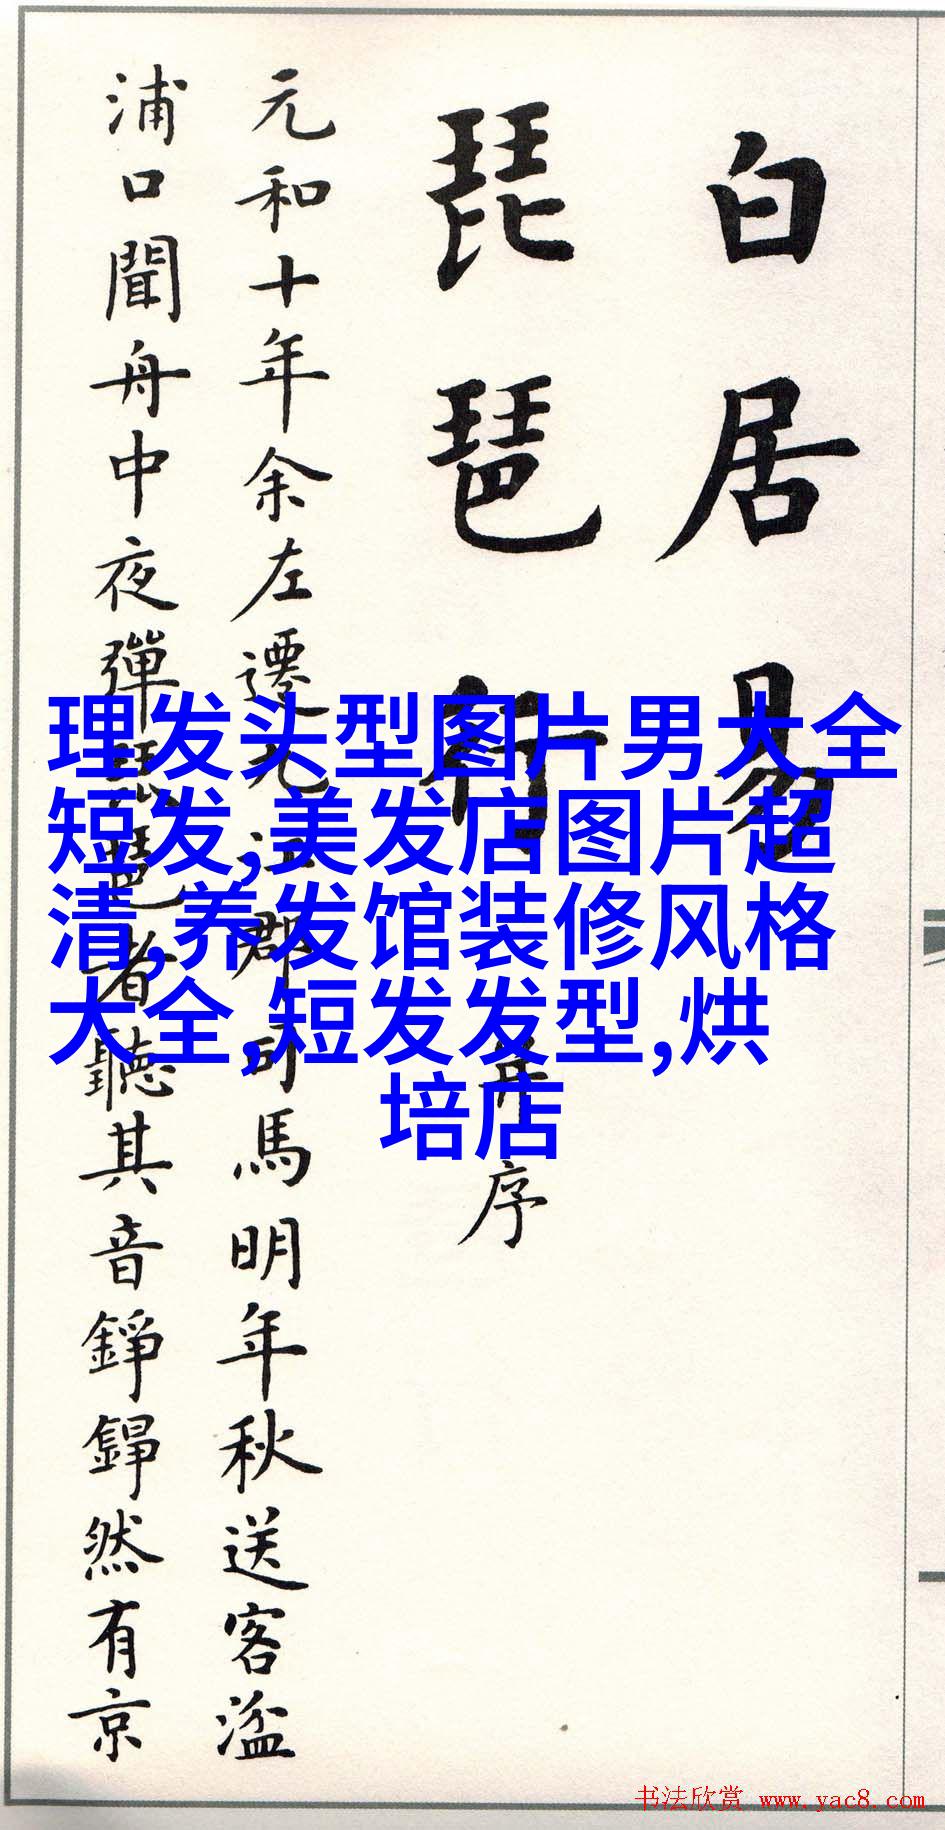 白居易
琵琶行 并序
元和十年余左遷九江郡司馬明年秋送客湓
浦口聞舟中夜彈琵琶者聽其音錚錚然有京
理发头型图片男大全
短发,美发店图片超
清,养发馆装修风格
大全,短发发型,烘
培店
书法欣赏 www.yac8.com